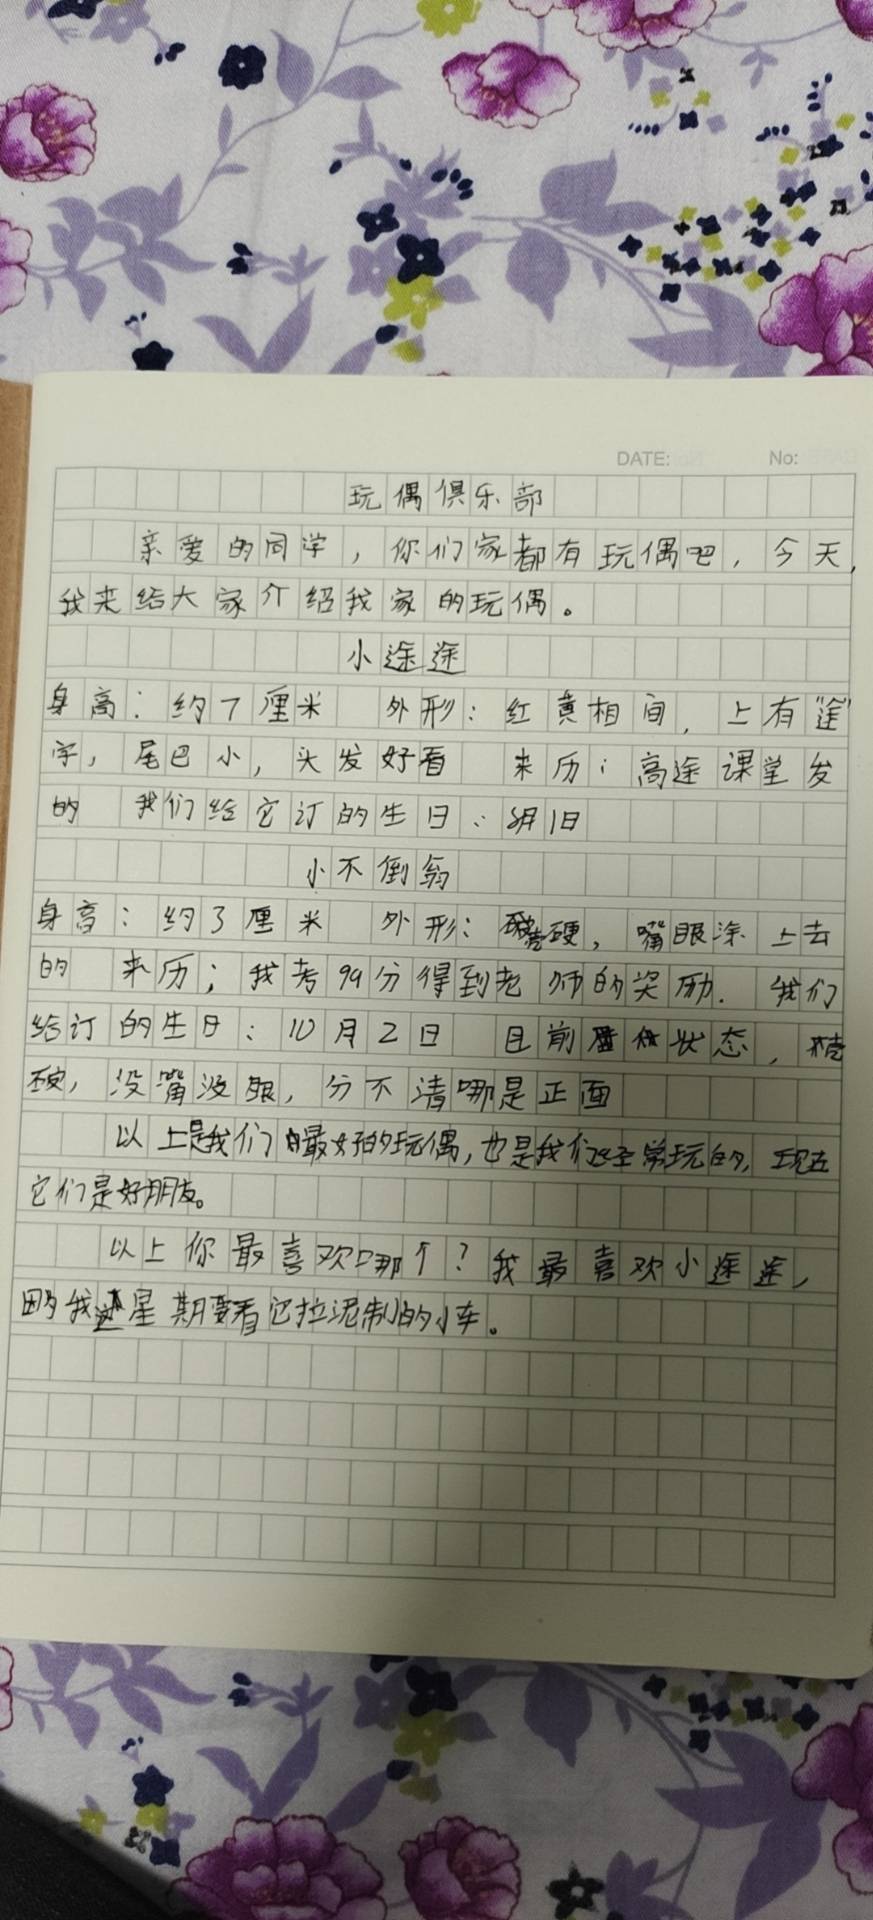 DATE: No:
玩偶俱乐部
亲爱的同学，你们家都有玩偶吧，今天，
我来给大家介绍我家的玩偶。
小途途
身高：约7厘米 外形：红黄相间，上有“途”
字，尾巴小，头发好看 来历：高途课堂发
的 我们给它订的生日：月1日
小不倒翁
身高：约3厘米 外形：硬，嘴眼涂上去
的 来历；我考99分得到老师的奖励. 我们
给订的生日：10月2日 目前状态，
硬，没嘴没眼，分不清哪是正面
以上是我们最好的玩偶，也是我们经常玩的，现在
它们是好朋友。
以上你最喜欢哪个？我最喜欢小途途，
因为我星期要看它拉泥制的小车。